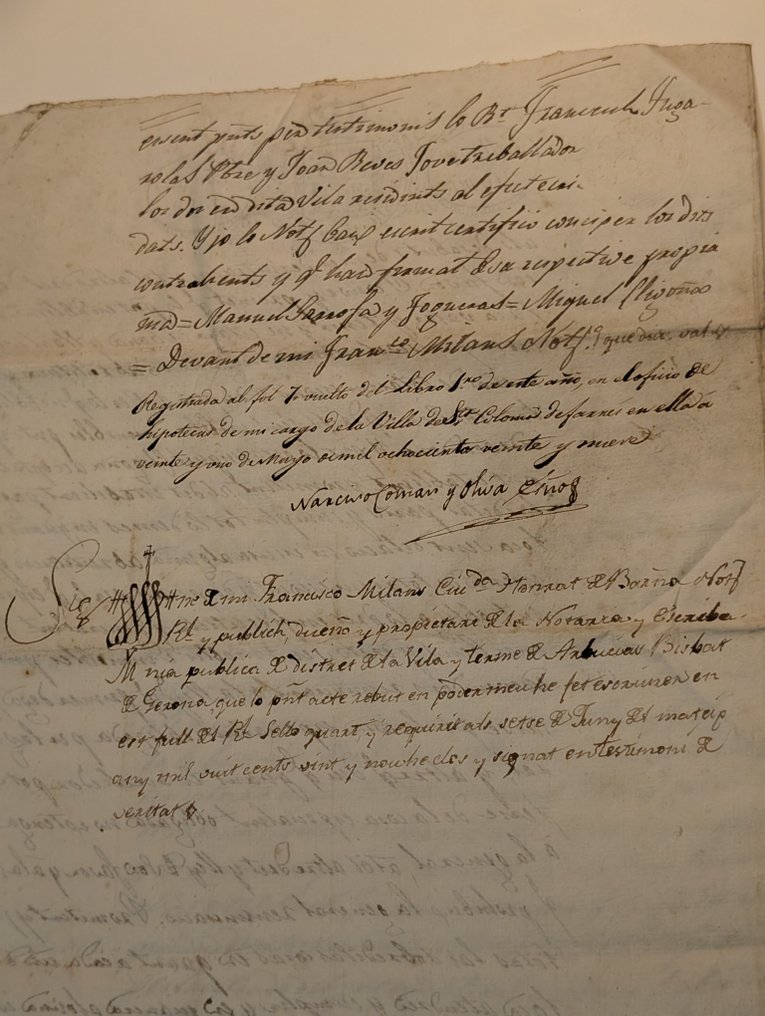 essent pñts per testimonis lo Rt. Francisch Juga-
rolas Pbre y Joan Reves Jove treballador
los dos en dita Vila residints al efecte cri-
dats. Y jo lo Notʃ baix escrit certifico conexer los dits
contrahents y q haver firmat de sa respective propia
ma = Manuel Sarrosa y Fogueras = Miquel
= Devant de mi Franco. Milans Notʃ. que dec. val
Registrada al fol 7 vuelto del Libro 1ro. de este año, en el oficio de
hipotecas de mi cargo de la Villa de Sta. Coloma de farnes en ella a
veinte y uno de Mayo de mil ochocientos veinte y nueve
Narciso Comas y Oliva Esño
Sig ne de mi Francisco Milans Ciudà. Honrat de Barña Notʃ
Rl. y publich, dueño y propietari de la Notaria y Escriba-
nia publica de districte de la Vila y terme de Arbucias Bisbat
de Gerona, que lo pñt acte rebut en poder meu he fet escriurer en
est full del Rl. Sello quart y requirit als setse de Juny del mateix
any mil vuit cents vint y nou he clos y signat en testimoni de
veritat